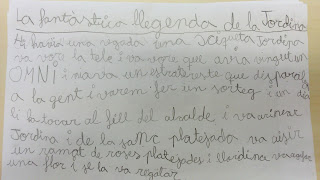 La fantàstica llegenda de la Jordina
Hi havia una vegada una xiqueta Jordina
va veure la tele i va veure que avia vingut un
OMNI i niava un estraterestre que disparava
a la gent i varem fer un sorteig i un dia
li va tocar al fill del alcalde i va arivar
Jordina i de la sanc platejada va eisir
un ramot de roses platejades i lleidina va agafar
una flor i se la va regalar